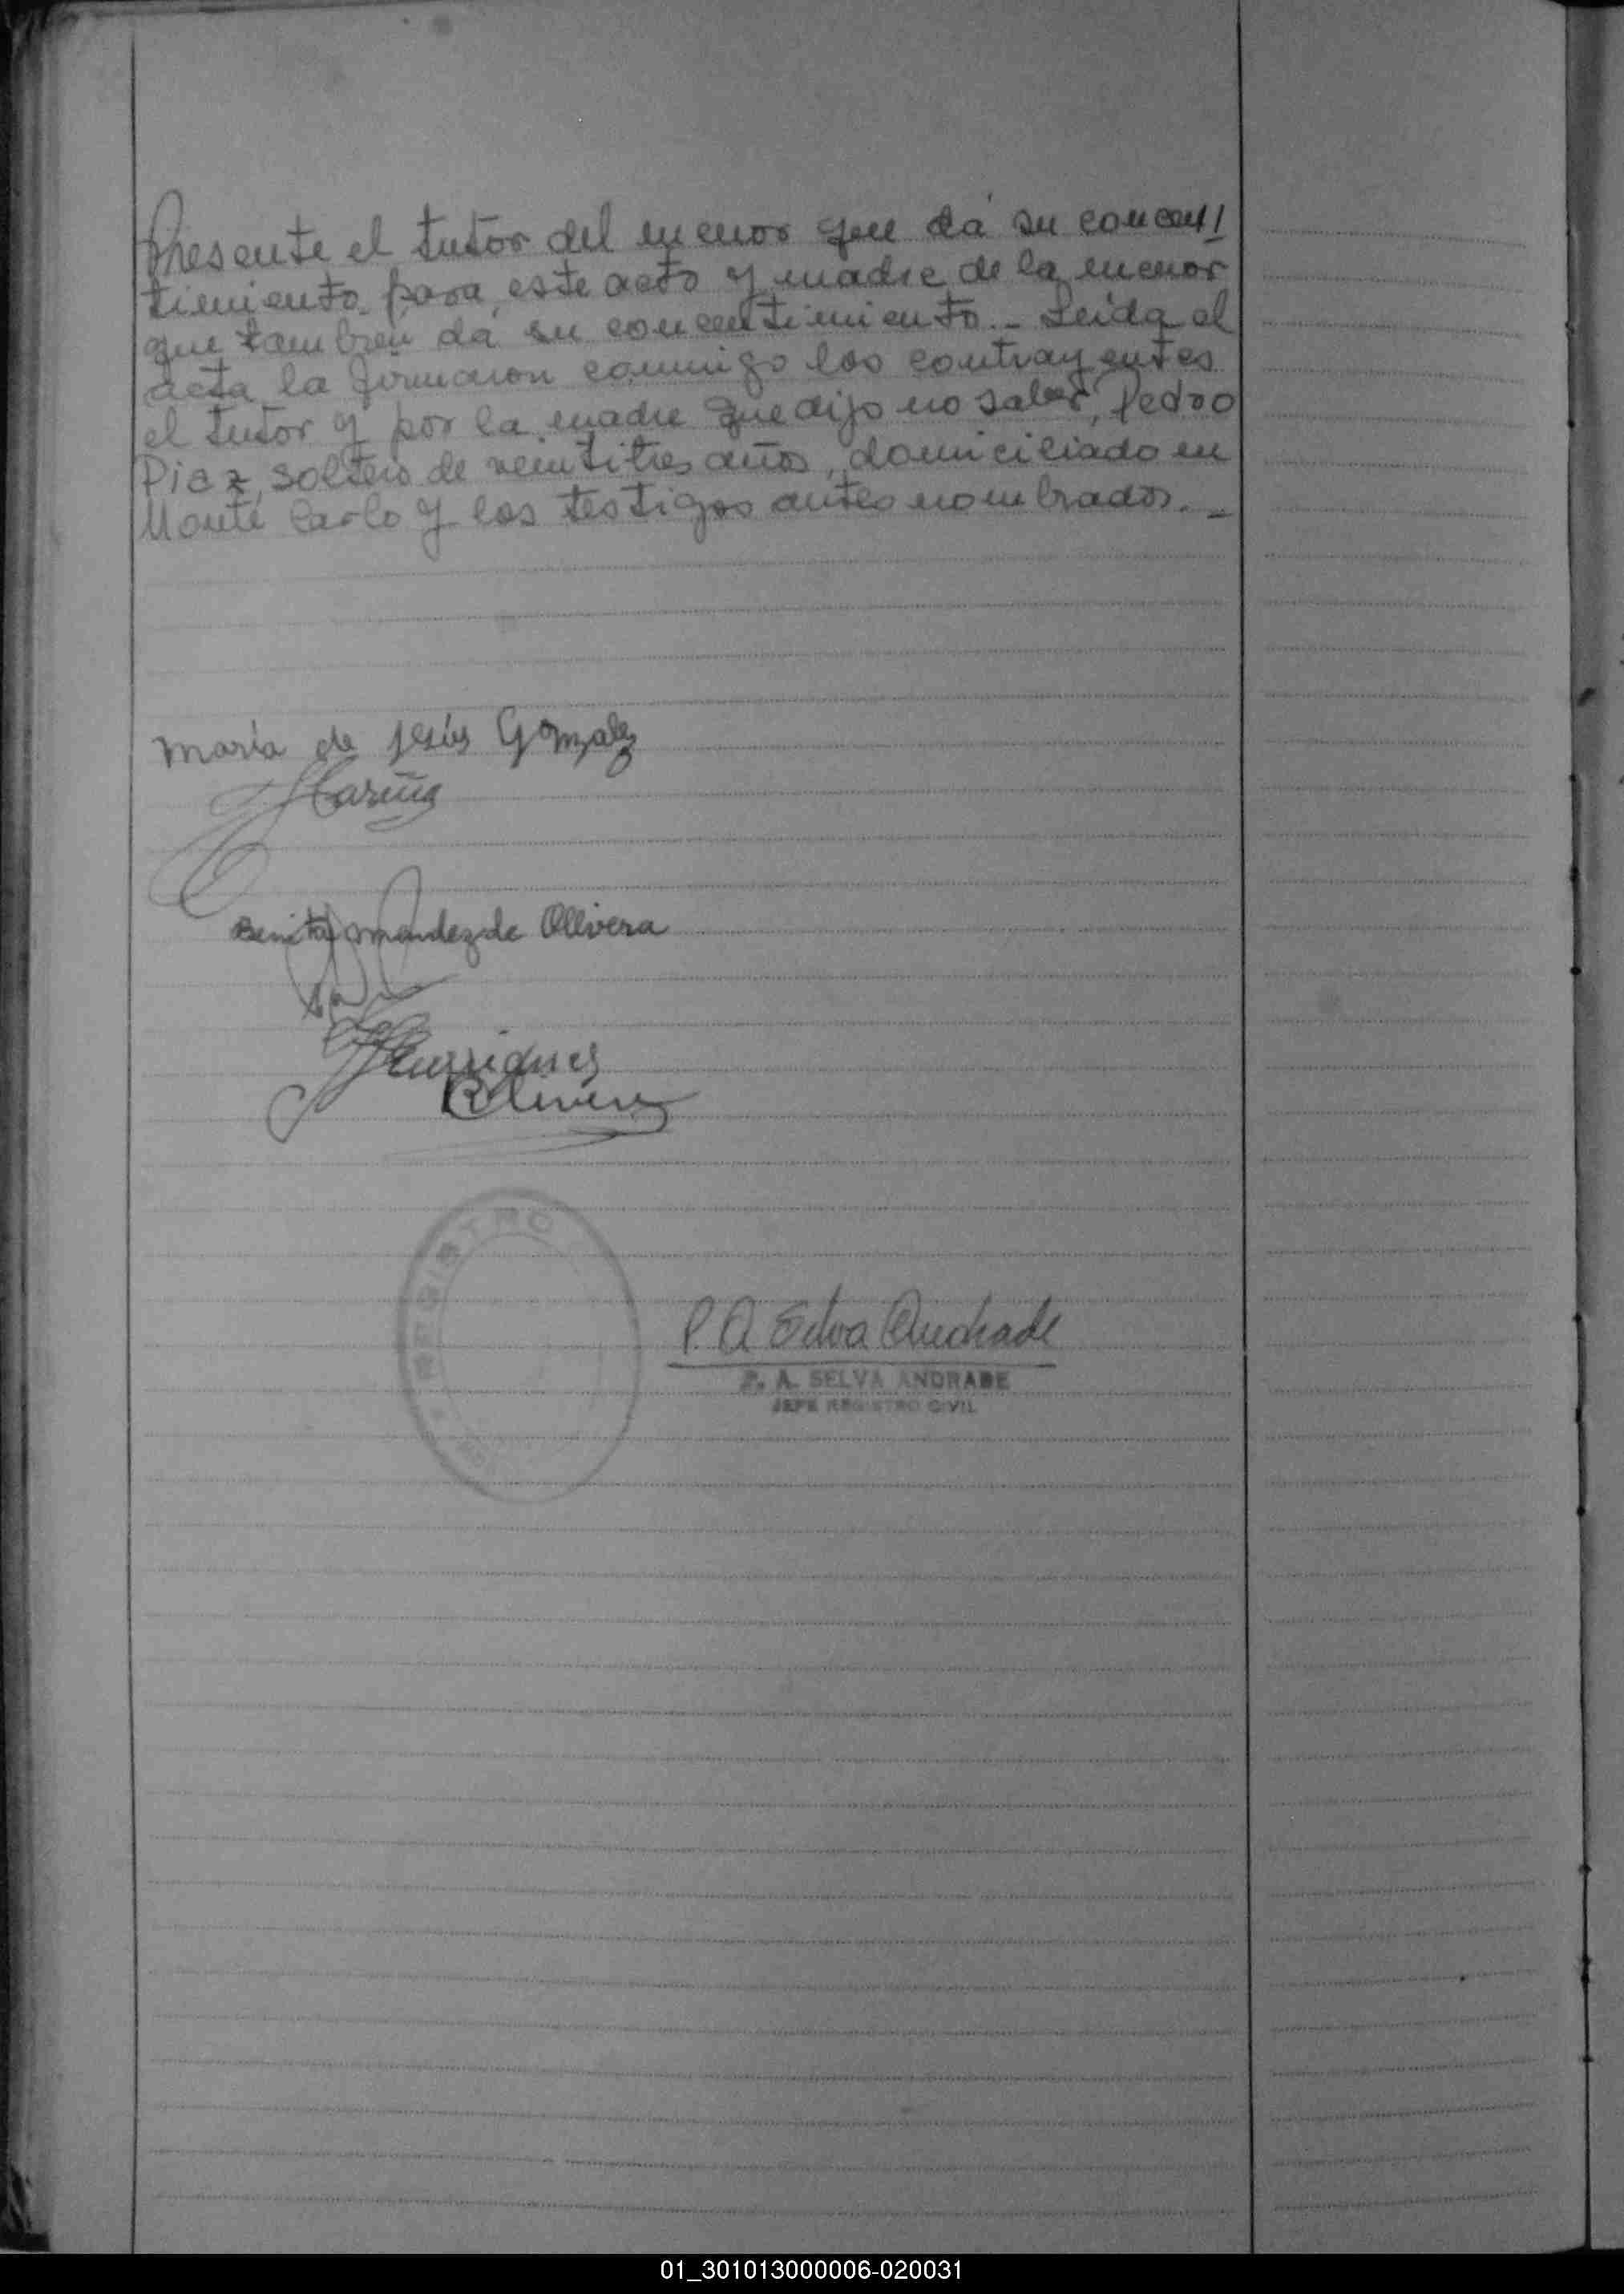 Presente el tutor del menor que dá su concen//
timiento para este acto y madre de la menor
que tambien dá su concentimiento._ Leida el
acta la firmaron conmigo los contrayentes
el tutor y por la madre que dijo no saber, Pedro
Diaz, soltero de veintitres años, domiciliado en
Monte Carlo y los testigos antes nombrados._
María de Jesús Gonzalez
Benita Mendez de Ollivera
Henriques
R Olivera
REGISTRO
P. A Selva Andrade
P. A. SELVA ANDRADE
JEFE REGISTRO CIVIL
01_301013000006-020031